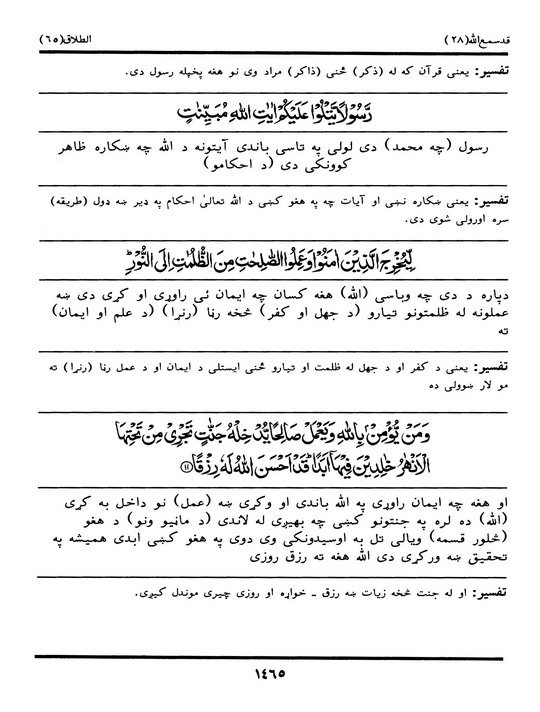 قدسمع الله (٢٨)
الطلاق (٦٥)
تفسیر: یعنی قرآن که له (ذکر) څنی (ذاکر) مراد وی نو هغه پخپله رسول دی.
رَّسُوۡلًا یَّتۡلُوۡا عَلَیۡکُمۡ اٰیٰتِ اللّٰہِ مُبَیِّنٰتٍ
رسول (چه محمد) دی لولی په تاسی باندی آیتونه د الله چه ښکاره ظاهر
کوونکی دی (د احکامو)
تفسیر: یعنی ښکاره نښی او آیات چه په هغو کښی د الله تعالیٰ احکام په ډیر ښه ډول (طریقه)
سره اورولی شوی دی.
لِّیُخۡرِجَ الَّذِیۡنَ اٰمَنُوۡا وَعَمِلُوا الصّٰلِحٰتِ مِنَ الظُّلُمٰتِ اِلَی النُّوۡرِؕ
دپاره د دی چه وباسی (الله) هغه کسان چه ایمان ئی راوړی او کړی دی ښه
عملونه له ظلمتونو تیارو (د جهل او کفر) څخه رڼا (رنړا) (د علم او ایمان)
ته
تفسیر: یعنی د کفر او د جهل له ظلمت او تیارو څنی ایستلی د ایمان او د عمل رڼا (رنړا) ته
مو لار ښوولی ده
وَمَنۡ یُّؤۡمِنۡۢ بِاللّٰہِ وَیَعۡمَلۡ صَالِحًا یُّدۡخِلۡہُ جَنّٰتٍ تَجۡرِیۡ مِنۡ تَحۡتِہَا
الۡاَنۡہٰرُ خٰلِدِیۡنَ فِیۡہَاۤ اَبَدًاؕ قَدۡ اَحۡسَنَ اللّٰہُ لَہٗ رِزۡقًا ﴿۱۱﴾
او هغه چه ایمان راوړی په الله باندی او وکړی ښه (عمل) نو داخل به کړی
(الله) ده لره په جنتونو کښی چه بهیږی له لاندی (د ماڼیو ونو) د هغو
(څلور قسمه) ویالی تل به اوسیدونکی وی دوی په هغو کښی ابدی همیشه په
تحقیق ښه ورکړی دی الله هغه ته رزق روزی
تفسیر: او له جنت څخه زیات ښه رزق ـ خواړه او روزی چیری موندل کیږی.
١٤٦٥